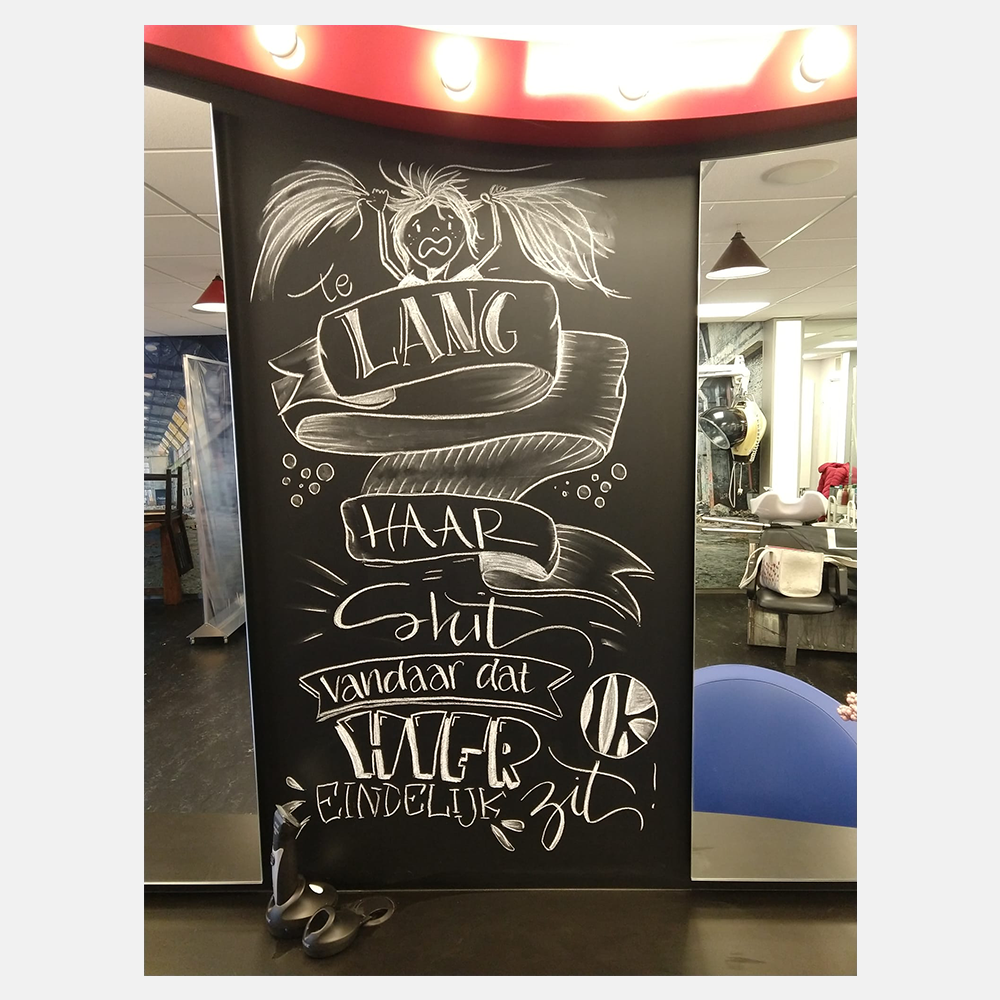 te
LANG
HAAR
Shit
vandaar dat
IK
HIER
EINDELIJK zit!